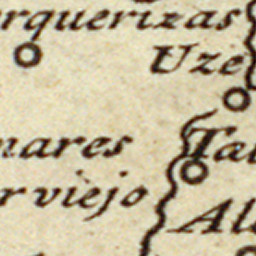 rquerizas
Uze
nares
Ta
r viejo
Al